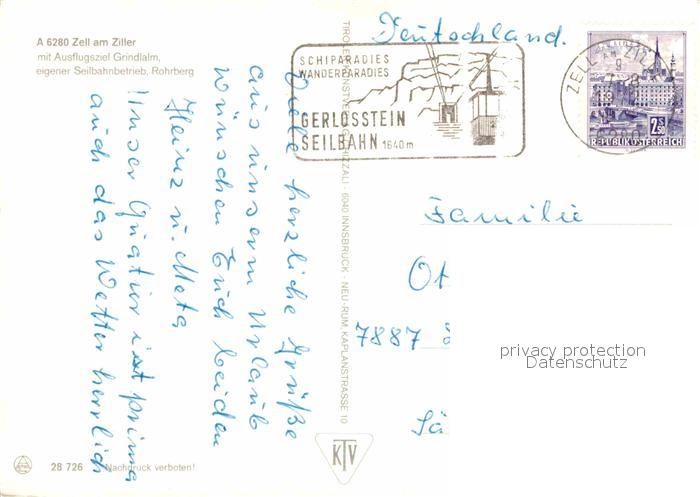 A 6280 Zell am Ziller
mit Ausflugsziel Grindlalm,
eigener Seilbahnbetrieb, Rohrberg
Viele herzliche Grüße
aus unserm Urlaub
wünschen Euch beiden
Heinz u. Meta
Unser Quatier ist prima
auch das Wetter herrlich
28 726
Nachdruck verboten!
6040 INNSBRUCK - NEU-RUM, KAPLANSTRASSE 10
KTV
Deutschland.
SCHIPARADIES
WANDERPARADIES
GERLOSSTEIN
SEILBAHN 1640m
ZELL AM ZILLER
2.50
REPUBLIK ÖSTERREICH
Familie
Ot
7887
Sä
privacy protection
Datenschutz